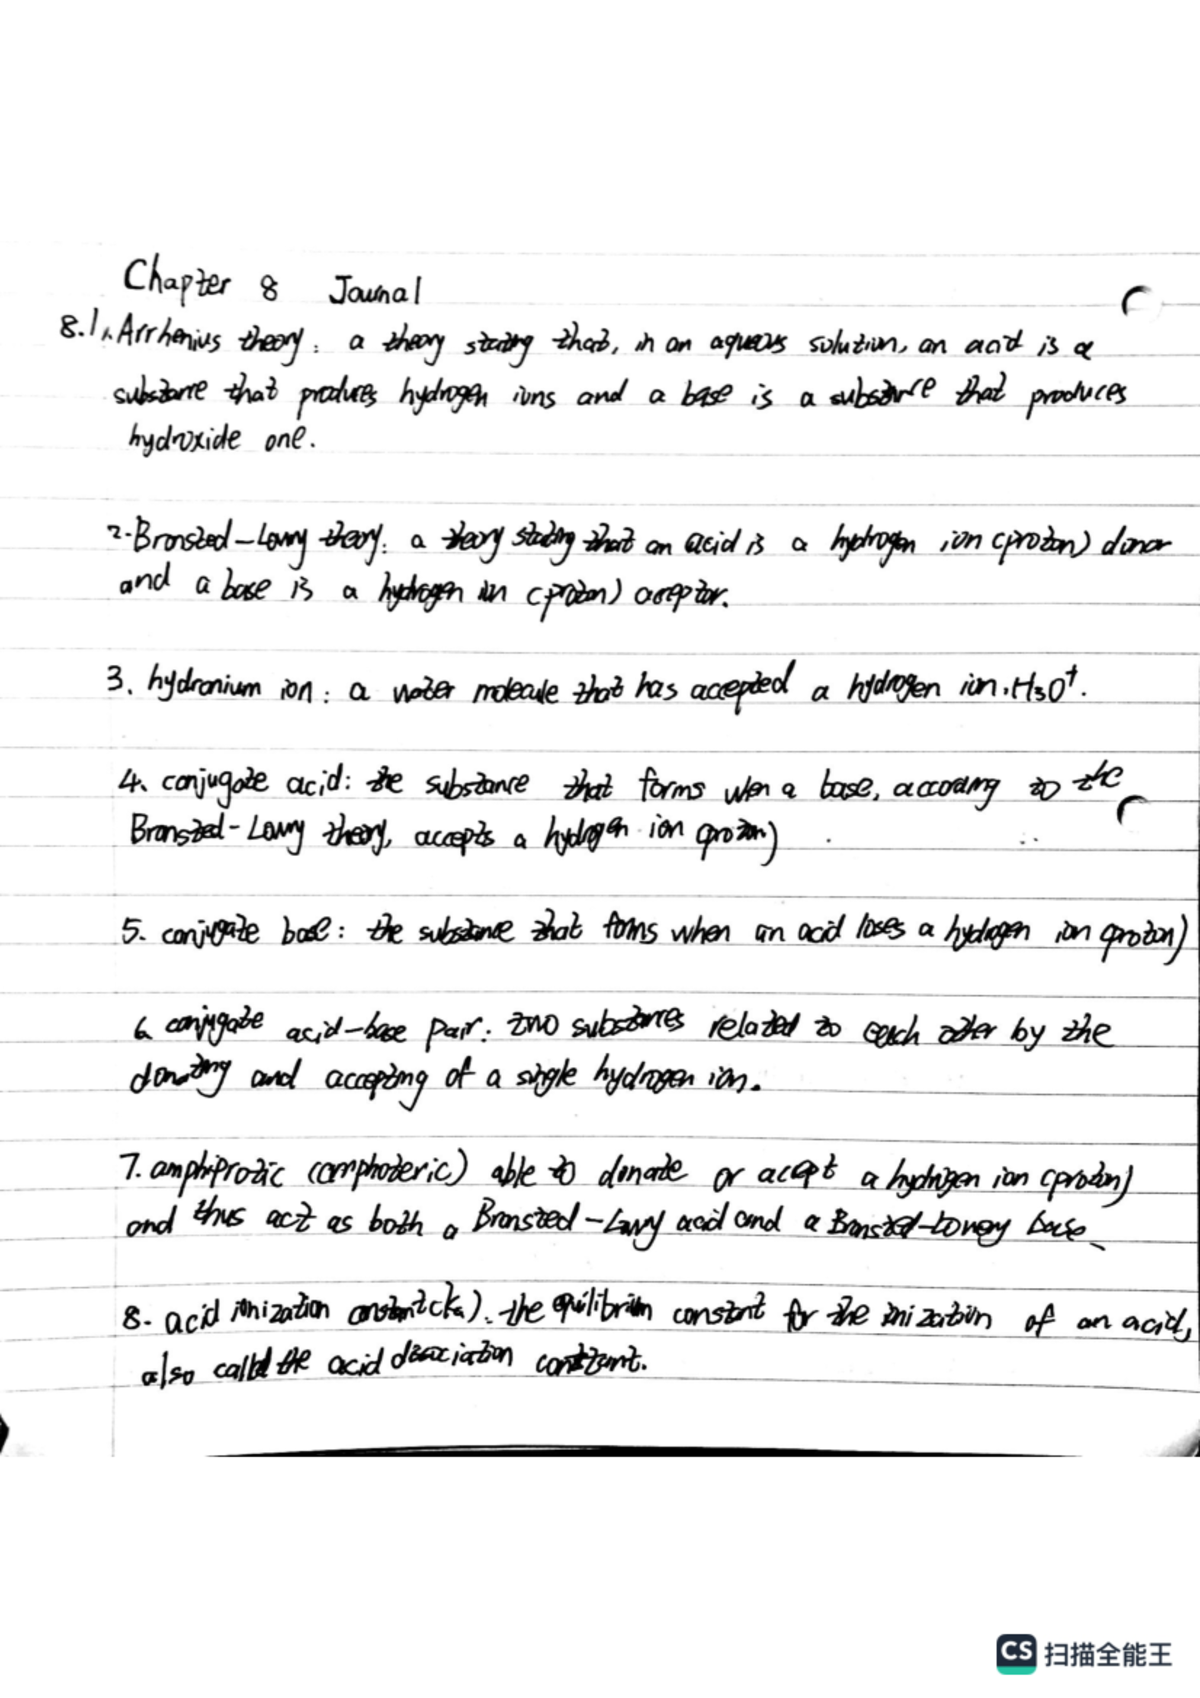 Chapter 8 Journal
8.1 1. Arrhenius theory: a theory stating that, in an aqueous solution, an acid is a
substance that produces hydrogen ions and a base is a substance that produces
hydroxide one.
2. Bronsted-Lowry theory: a theory stating that an acid is a hydrogen ion (proton) donor
and a base is a hydrogen ion (proton) acceptor.
3. hydronium ion: a water molecule that has accepted a hydrogen ion. H₃O⁺.
4. conjugate acid: the substance that forms when a base, according to the
Bronsted-Lowry theory, accepts a hydrogen ion (proton)
5. conjugate base: the substance that forms when an acid loses a hydrogen ion (proton)
6. conjugate acid-base pair: two substances related to each other by the
donating and accepting of a single hydrogen ion.
7. amphiprotic (amphoteric) able to donate or accept a hydrogen ion (proton)
and thus act as both a Bronsted-Lowry acid and a Bronsted-Lowery base.
8. acid ionization constant (Ka). the equilibrium constant for the inization of an acid,
also called the acid dissociation constant.
CS 扫描全能王